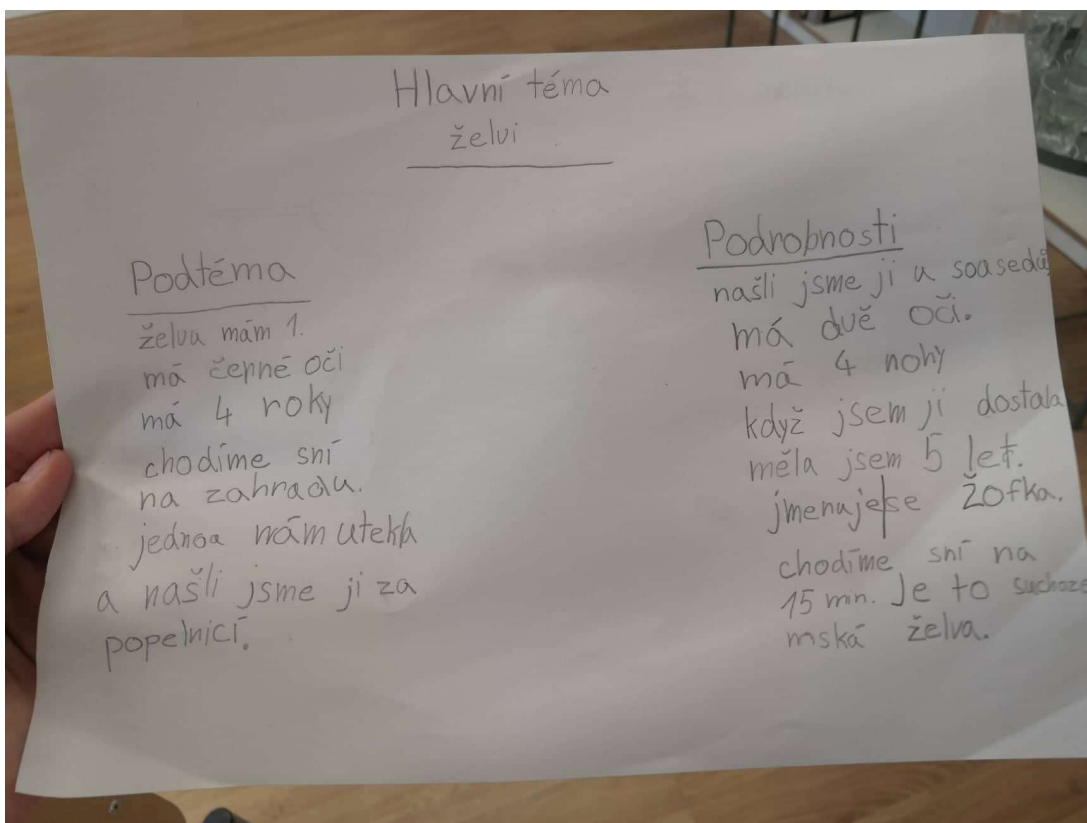 Hlavní téma
želvi
Podtéma
želva mám 1.
má černé oči
má 4 roky
chodíme sní
na zahradu.
jednoa nám utekla
a našli jsme ji za
popelnicí.
Podrobnosti
našli jsme ji u soasedů
má dvě oči.
má 4 nohy
když jsem ji dostala
měla jsem 5 let.
jmenuje|se Žofka.
chodíme sní na
15 min. Je to suchoze
mská želva.